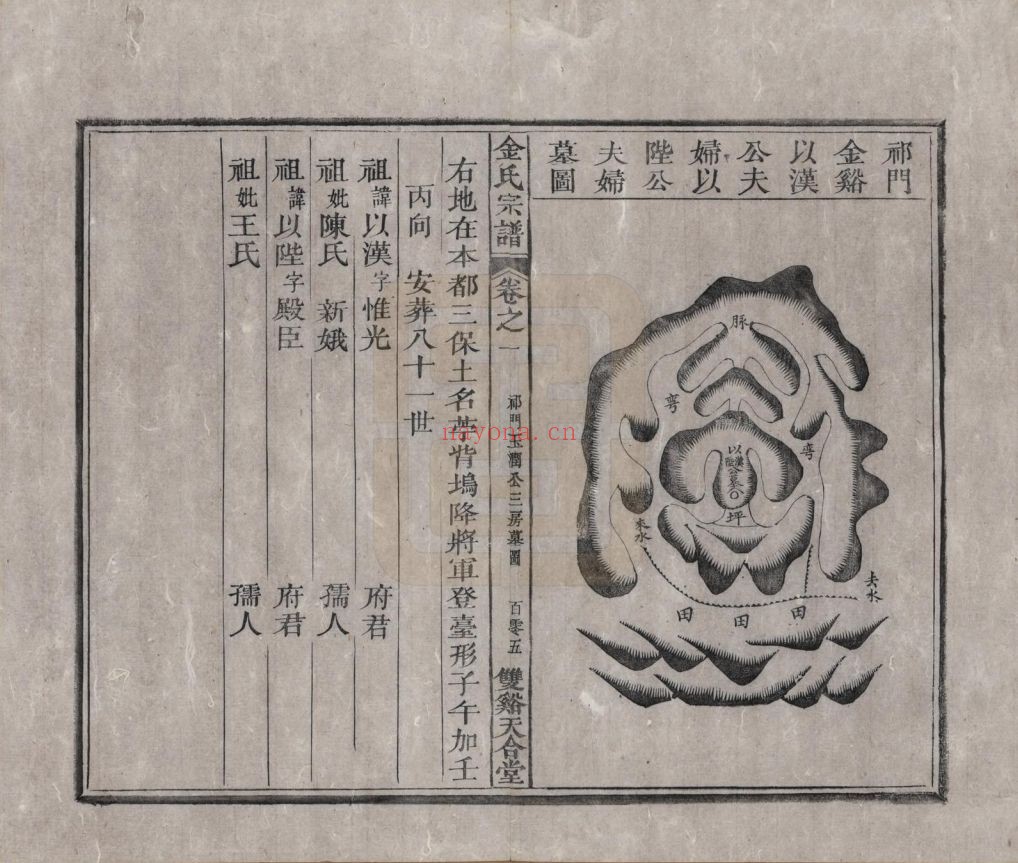 祁門
金谿
以漢
公夫
婦以
陛公
夫婦
墓圖
脉
弯
弯
以漢
陛公墓
坪
來水
去水
田
田
田
金氏宗譜
卷之一
祁門玉潤公三房墓圖
百零五
雙谿天合堂
右地在本都三保土名
背塢降將軍登臺形子午加壬
丙向 安葬八十一世
祖諱以漢字惟光 府君
祖妣陳氏 新娥 孺人
祖諱以陛字殿臣 府君
祖妣王氏 孺人
mayona.cn